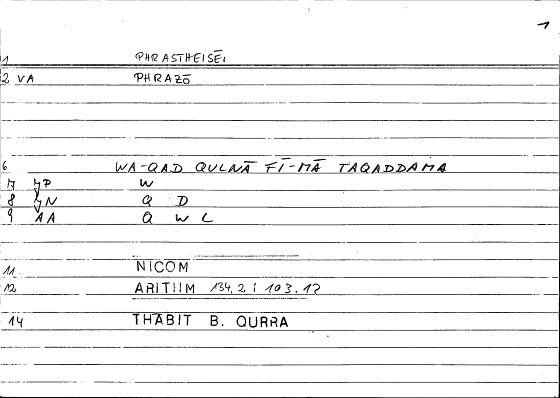 1
1 PHRASTHEISĒI
2 VA PHRAZŌ
6 WA-QAD QULNĀ FĪ-MĀ TAQADDAMA
7 JP W
8 JN Q D
9 AA Q W L
11 NICOM
12 ARITHM 134.2; 103.12
14 THĀBIT B. QURRA